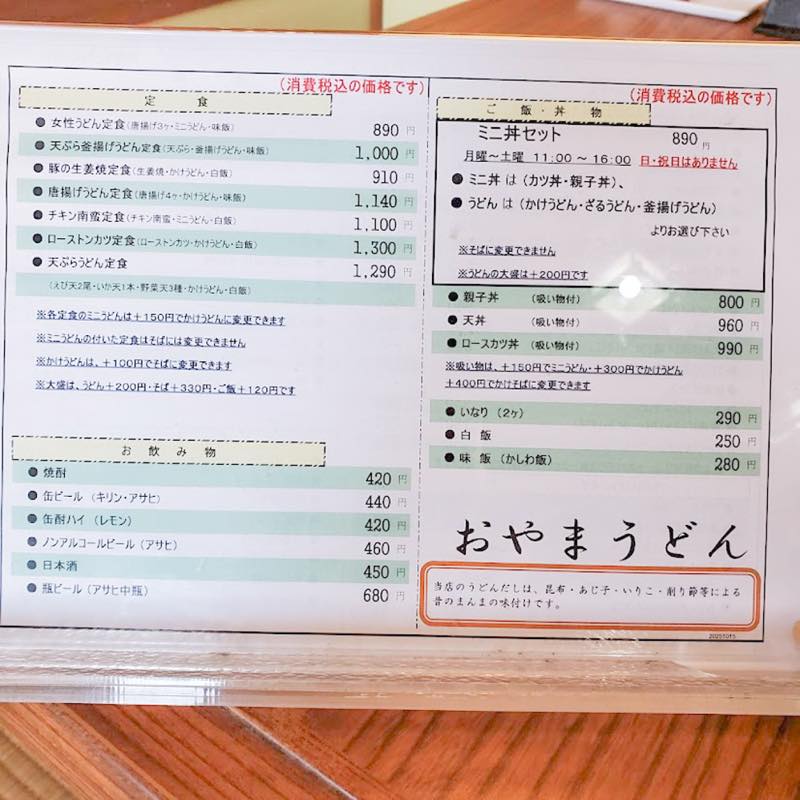 (消費税込の価格です)
定 食
● 女性うどん定食(唐揚げ3ヶ・ミニうどん・味飯) 890 円
● 天ぷら釜揚げうどん定食(天ぷら・釜揚げうどん・味飯) 1,000 円
● 豚の生姜焼定食(生姜焼・かけうどん・白飯) 910 円
● 唐揚げうどん定食(唐揚げ4ヶ・かけうどん・味飯) 1,140 円
● チキン南蛮定食(チキン南蛮・ミニうどん・白飯) 1,100 円
● ローストンカツ定食(ローストンカツ・かけうどん・白飯) 1,300 円
● 天ぷらうどん定食 1,290 円
(えび天2尾・いか天1本・野菜天3種・かけうどん・白飯)
※各定食のミニうどんは+150円でかけうどんに変更できます
※ミニうどんの付いた定食はそばには変更できません
※かけうどんは、+100円でそばに変更できます
※大盛は、うどん+200円・そば+330円・ご飯+120円です
お 飲 み 物
● 焼酎 420 円
● 缶ビール (キリン・アサヒ) 440 円
● 缶酎ハイ (レモン) 420 円
● ノンアルコールビール (アサヒ) 460 円
● 日本酒 450 円
● 瓶ビール (アサヒ中瓶) 680 円
(消費税込の価格です)
ご 飯 ・ 丼 物
ミニ丼セット 890 円
月曜～土曜 11:00 ～ 16:00 日・祝日はありません
● ミニ丼 は (カツ丼・親子丼)、
● うどん は (かけうどん・ざるうどん・釜揚げうどん)
よりお選び下さい
※そばに変更できません
※うどんの大盛は+200円です
● 親子丼 (吸い物付) 800 円
● 天丼 (吸い物付) 960 円
● ロースカツ丼 (吸い物付) 990 円
※吸い物は、+150円でミニうどん・+300円でかけうどん
+400円でかけそばに変更できます
● いなり (2ヶ) 290 円
● 白 飯 250 円
● 味 飯 (かしわ飯) 280 円
おやまうどん
当店のうどんだしは、昆布・あじ子・いりこ・削り節等による
昔のまんまの味付けです。
20251015